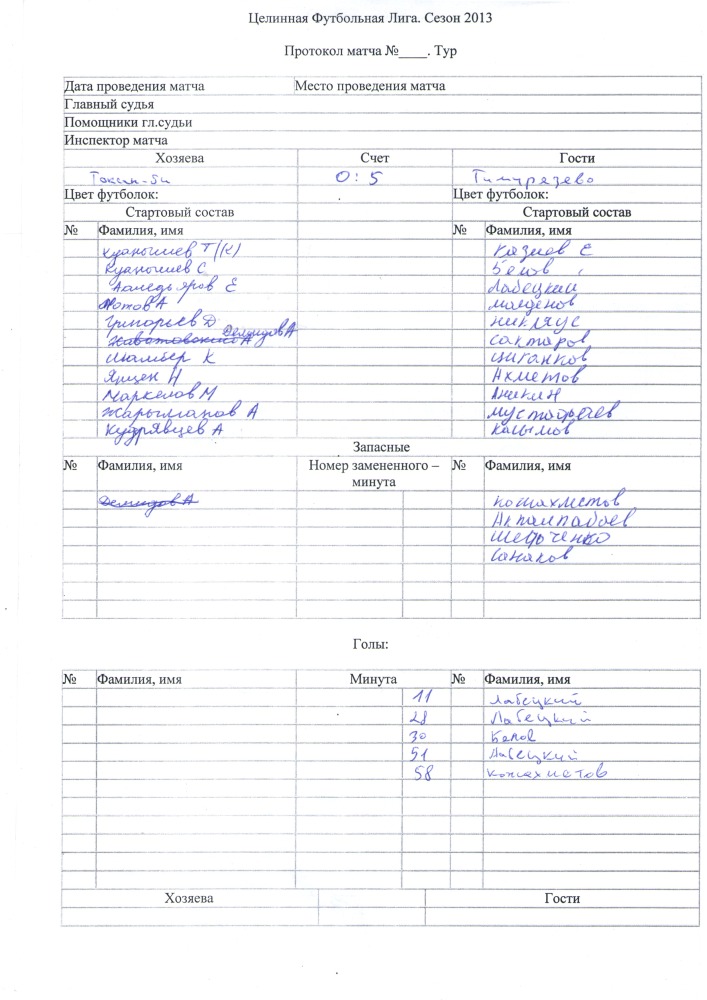 Целинная Футбольная Лига. Сезон 2013
Протокол матча №____. Тур
Дата проведения матча Место проведения матча
Главный судья
Помощники гл.судьи
Инспектор матча
Хозяева Счет Гости
Токсан-би 0:5 Тимирязево
Цвет футболок: Цвет футболок:
Стартовый состав Стартовый состав
№ Фамилия, имя № Фамилия, имя
Куанышев Т (К) Казиев Е
Куанышев С Белов
Ахмедьяров Е Лабецкий
Котов А Магденов
Григорьев Д Никляус
Животовский А Демидов А Сактаров
Шамбер К Цыганков
Яицен Н Ахметов
Маркелов М Аникин
Жарылгапов А Мустафаев
Кудрявцев А Касымов
Запасные
№ Фамилия, имя Номер замененного – минута № Фамилия, имя
Демидов А Кожахметов
Акпанпабаев
Шевченко
Санаков
Голы:
№ Фамилия, имя Минута № Фамилия, имя
11 Лабецкий
28 Лабецкий
30 Белов
51 Лабецкий
58 Кожахметов
Хозяева Гости